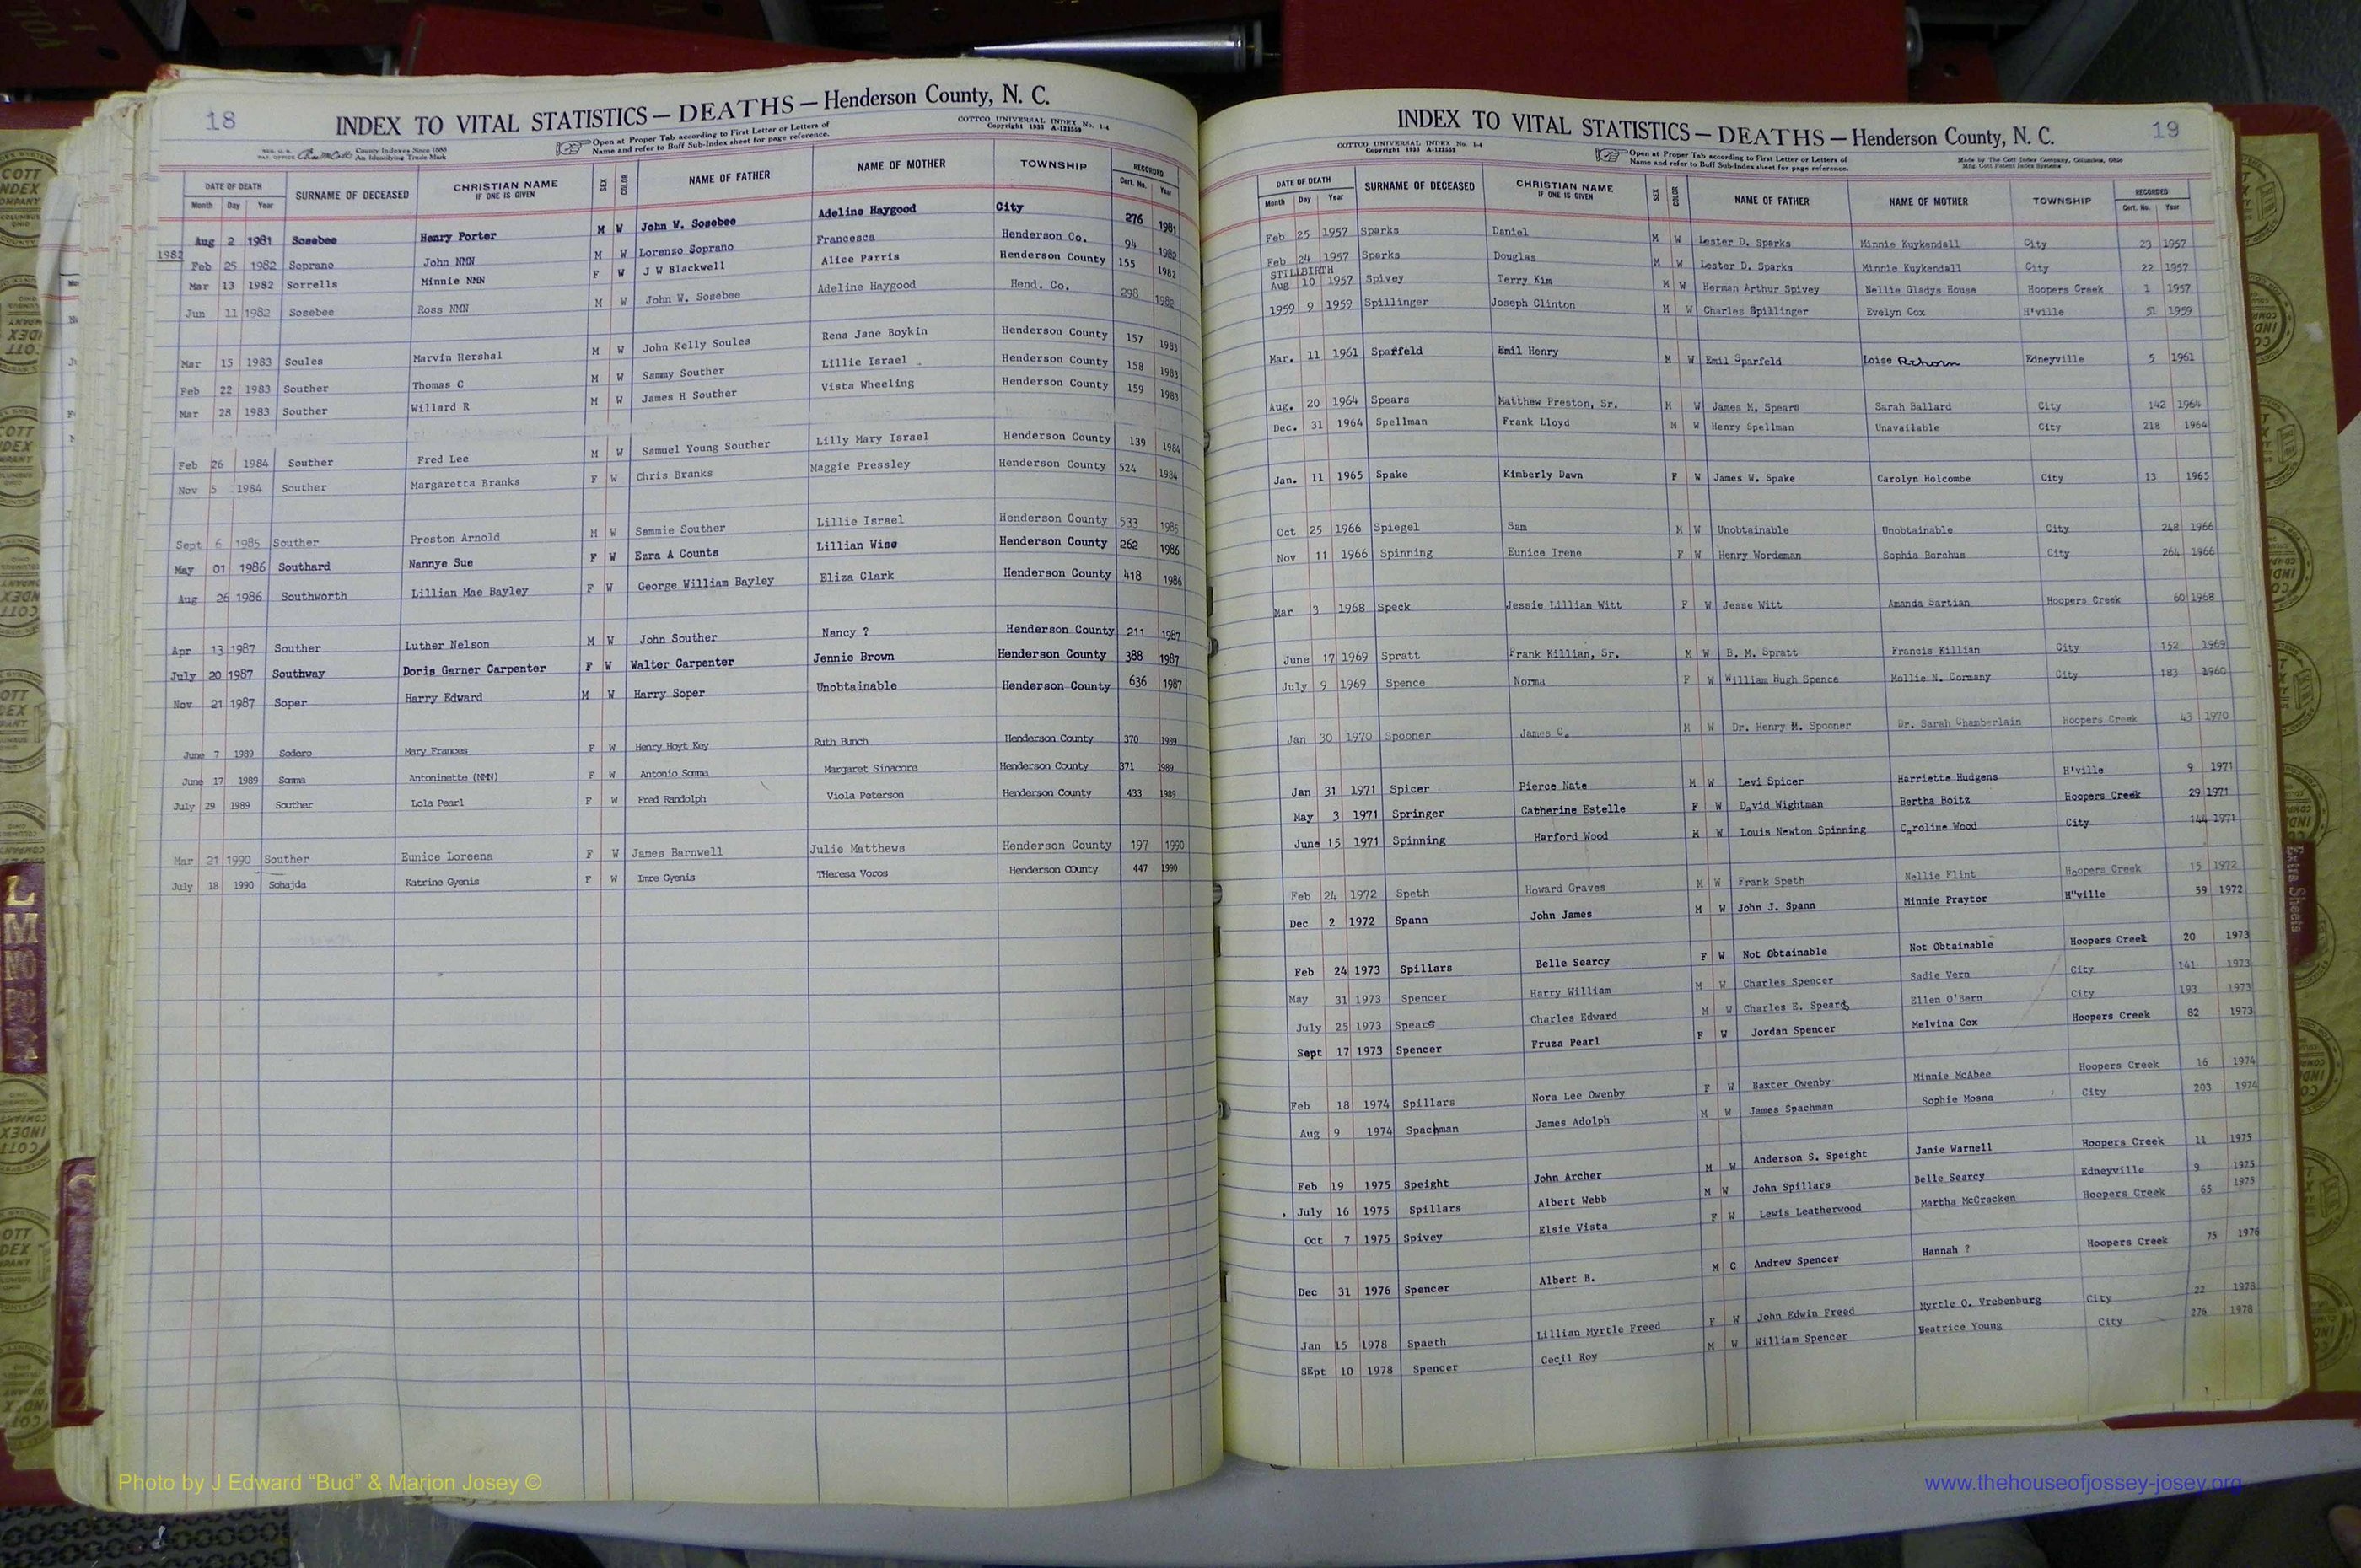 18
INDEX TO VITAL STATISTICS — DEATHS — Henderson County, N. C.
COTTCO UNIVERSAL INDEX No. 1-4
Copyright 1933 A-122559
County Indexes Since 1888
An Identifying Trade Mark
Open at Proper Tab according to First Letter or Letters of
Name and refer to Buff Sub-Index sheet for page reference.
DATE OF DEATH SURNAME OF DECEASED CHRISTIAN NAME IF ONE IS GIVEN SEX COLOR NAME OF FATHER NAME OF MOTHER TOWNSHIP RECORDED
Month Day Year Cert. No. Year
Aug 2 1981 Sosebee Henry Porter M W John W. Sosebee Adeline Haygood City 276 1981
1982
Feb 25 1982 Soprano John NMN M W Lorenzo Soprano Francesca Henderson Co. 94 1982
Mar 13 1982 Sorrells Minnie NMN F W J W Blackwell Alice Parris Henderson County 155 1982
Jun 11 1982 Sosebee Ross NMN M W John W. Sosebee Adeline Haygood Hend. Co. 298 1982
Mar 15 1983 Soules Marvin Hershal M W John Kelly Soules Rena Jane Boykin Henderson County 157 1983
Feb 22 1983 Souther Thomas C M W Sammy Souther Lillie Israel Henderson County 158 1983
Mar 28 1983 Souther Willard R M W James H Souther Vista Wheeling Henderson County 159 1983
Feb 26 1984 Souther Fred Lee M W Samuel Young Souther Lilly Mary Israel Henderson County 139 1984
Nov 5 1984 Souther Margaretta Branks F W Chris Branks Maggie Pressley Henderson County 524 1984
Sept 6 1985 Souther Preston Arnold M W Sammie Souther Lillie Israel Henderson County 533 1985
May 01 1986 Southard Nannye Sue F W Ezra A Counts Lillian Wise Henderson County 262 1986
Aug 26 1986 Southworth Lillian Mae Bayley F W George William Bayley Eliza Clark Henderson County 418 1986
Apr 13 1987 Souther Luther Nelson M W John Souther Nancy ? Henderson County 211 1987
July 20 1987 Southway Doris Garner Carpenter F W Walter Carpenter Jennie Brown Henderson County 388 1987
Nov 21 1987 Soper Harry Edward M W Harry Soper Unobtainable Henderson County 636 1987
June 7 1989 Sodero Mary Frances F W Henry Hoyt Key Ruth Bunch Henderson County 370 1989
June 17 1989 Somma Antoninette (NMN) F W Antonio Somma Margaret Sinacore Henderson County 371 1989
July 29 1989 Souther Lola Pearl F W Fred Randolph Viola Peterson Henderson County 433 1989
Mar 21 1990 Souther Eunice Loreena F W James Barnwell Julie Matthews Henderson County 197 1990
July 18 1990 Sohajda Katrine Gyenis F W Imre Gyenis THeresa Voros Henderson COunty 447 1990
19
INDEX TO VITAL STATISTICS — DEATHS — Henderson County, N. C.
COTTCO UNIVERSAL INDEX No. 1-4
Copyright 1933 A-122559
Open at Proper Tab according to First Letter or Letters of
Name and refer to Buff Sub-Index sheet for page reference.
Made by The Cott Index Company, Columbus, Ohio
Mfg. Cott Patent Index Systems
DATE OF DEATH SURNAME OF DECEASED CHRISTIAN NAME IF ONE IS GIVEN SEX COLOR NAME OF FATHER NAME OF MOTHER TOWNSHIP RECORDED
Month Day Year Cert. No. Year
Feb 25 1957 Sparks Daniel M W Lester D. Sparks Minnie Kuykendall City 23 1957
Feb 24 1957 Sparks Douglas M W Lester D. Sparks Minnie Kuykendall City 22 1957
STILLBIRTH
Aug 10 1957 Spivey Terry Kim M W Herman Arthur Spivey Nellie Gladys House Hoopers Creek 1 1957
1959 9 1959 Spillinger Joseph Clinton M W Charles Spillinger Evelyn Cox H'ville 51 1959
Mar. 11 1961 Sparfeld Emil Henry M W Emil Sparfeld Loise Edneyville 5 1961
Aug. 20 1964 Spears Matthew Preston, Sr. M W James M. Spears Sarah Ballard City 142 1964
Dec. 31 1964 Spellman Frank Lloyd M W Henry Spellman Unavailable City 218 1964
Jan. 11 1965 Spake Kimberly Dawn F W James W. Spake Carolyn Holcombe City 13 1965
Oct 25 1966 Spiegel Sam M W Unobtainable Unobtainable City 248 1966
Nov 11 1966 Spinning Eunice Irene F W Henry Wordeman Sophia Borchus City 264 1966
Mar 3 1968 Speck Jessie Lillian Witt F W Jesse Witt Amanda Sartian Hoopers Creek 60 1968
June 17 1969 Spratt Frank Killian, Sr. M W B. M. Spratt Francis Killian City 152 1969
July 9 1969 Spence Norma F W William Hugh Spence Mollie N. Cormany City 183 1960
Jan 30 1970 Spooner James C. M W Dr. Henry M. Spooner Dr. Sarah Chamberlain Hoopers Creek 43 1970
Jan 31 1971 Spicer Pierce Nate M W Levi Spicer Harriette Hudgens H'ville 9 1971
May 3 1971 Springer Catherine Estelle F W David Wightman Bertha Boitz Hoopers Creek 29 1971
June 15 1971 Spinning Harford Wood M W Louis Newton Spinning Caroline Wood City 144 1971
Feb 24 1972 Speth Howard Graves M W Frank Speth Nellie Flint Hoopers Creek 15 1972
Dec 2 1972 Spann John James M W John J. Spann Minnie Praytor H"ville 59 1972
Feb 24 1973 Spillars Belle Searcy F W Not Obtainable Not Obtainable Hoopers Creek 20 1973
May 31 1973 Spencer Harry William M W Charles Spencer Sadie Vern City 141 1973
July 25 1973 Spears Charles Edward M W Charles E. Spears Ellen O'Bern City 193 1973
Sept 17 1973 Spencer Fruza Pearl F W Jordan Spencer Melvina Cox Hoopers Creek 82 1973
Feb 18 1974 Spillars Nora Lee Owenby F W Baxter Owenby Minnie McAbee Hoopers Creek 16 1974
Aug 9 1974 Spachman James Adolph M W James Spachman Sophie Mosna City 203 1974
Feb 19 1975 Speight John Archer M W Anderson S. Speight Janie Warnell Hoopers Creek 11 1975
July 16 1975 Spillars Albert Webb M W John Spillars Belle Searcy Edneyville 9 1975
Oct 7 1975 Spivey Elsie Vista F W Lewis Leatherwood Martha McCracken Hoopers Creek 65 1975
Dec 31 1976 Spencer Albert B. M C Andrew Spencer Hannah ? Hoopers Creek 75 1976
Jan 15 1978 Spaeth Lillian Myrtle Freed F W John Edwin Freed Myrtle O. Vrebenburg City 22 1978
SEpt 10 1978 Spencer Cecil Roy M W William Spencer Beatrice Young City 276 1978
Extra Sheets
L
M
Photo by J Edward “Bud” & Marion Josey ©
www.thehouseofjossey-josey.org